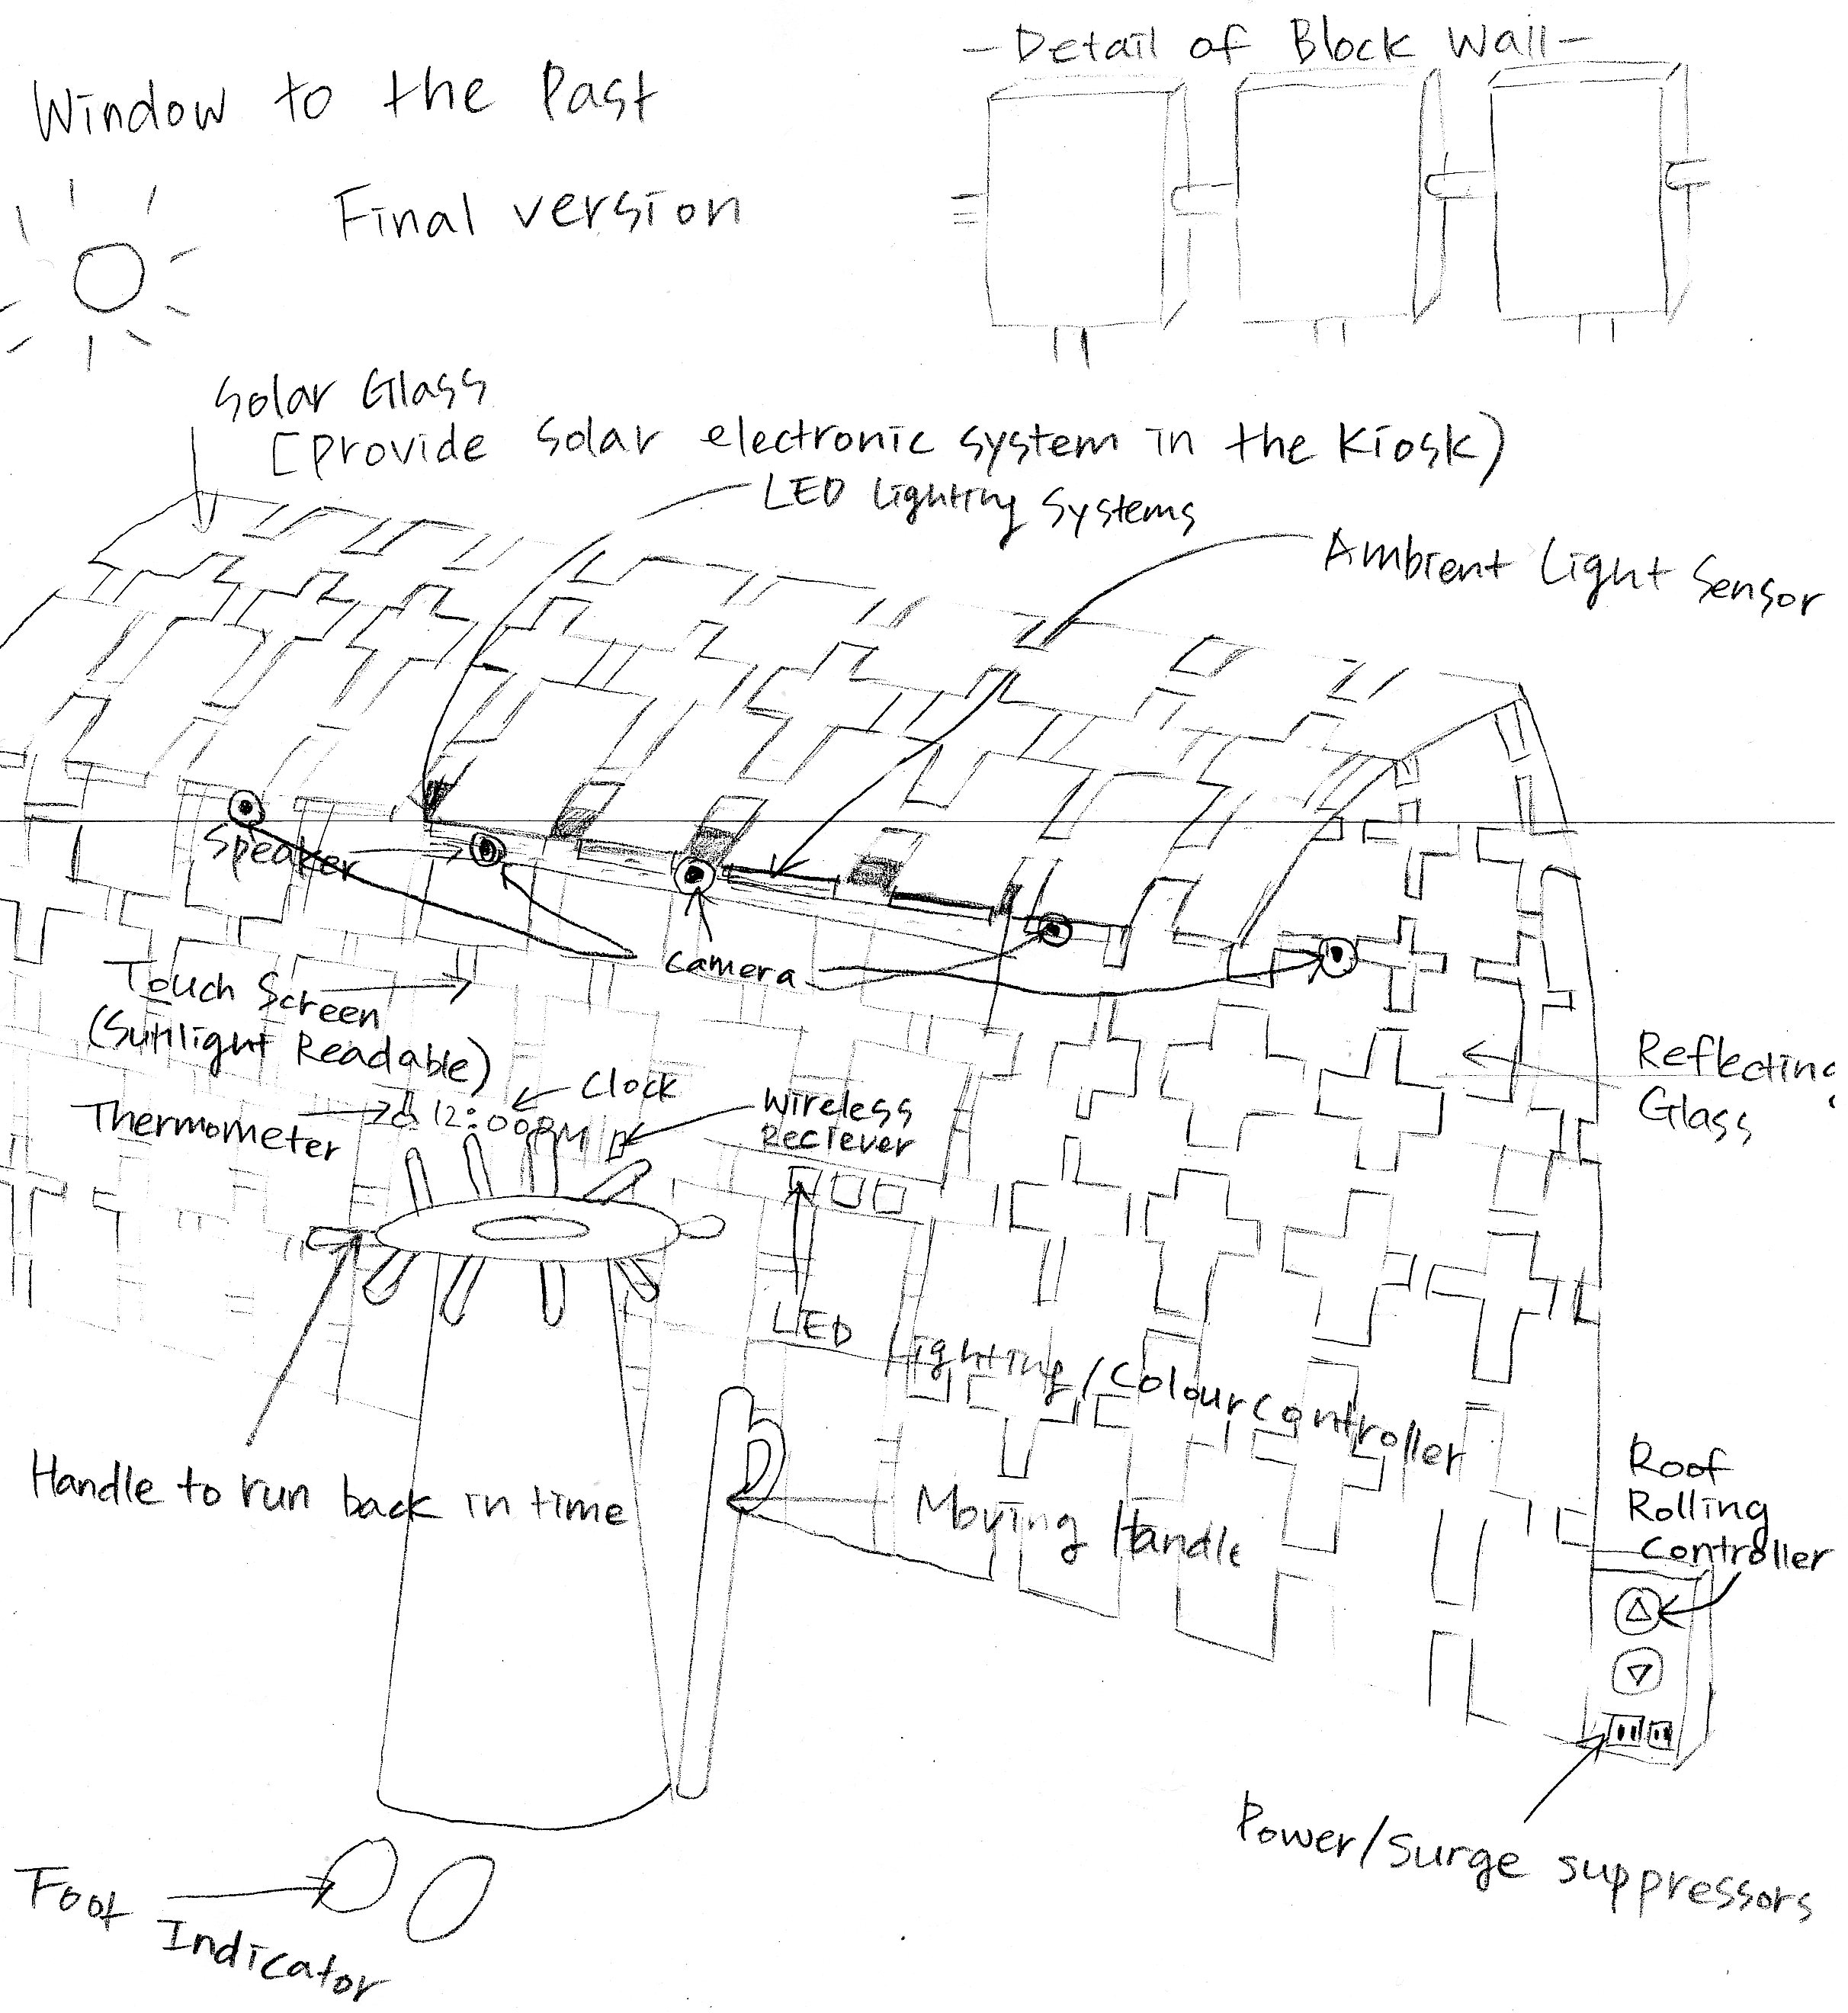 - Detail of Block Wall -
Window to the Past
Final version
Solar Glass
[provide solar electronic system in the Kiosk)
LED Lighting Systems
Ambient Light Sensor
Speaker
Camera
Touch Screen
(Sunlight Readable)
Reflecting
Glass
Clock
Thermometer
12:00PM
Wireless
Reciever
LED Lighting/Colour Controller
Handle to run back in time
Moving Handle
Roof
Rolling
Controller
Power/Surge suppressors
Foot
Indicator